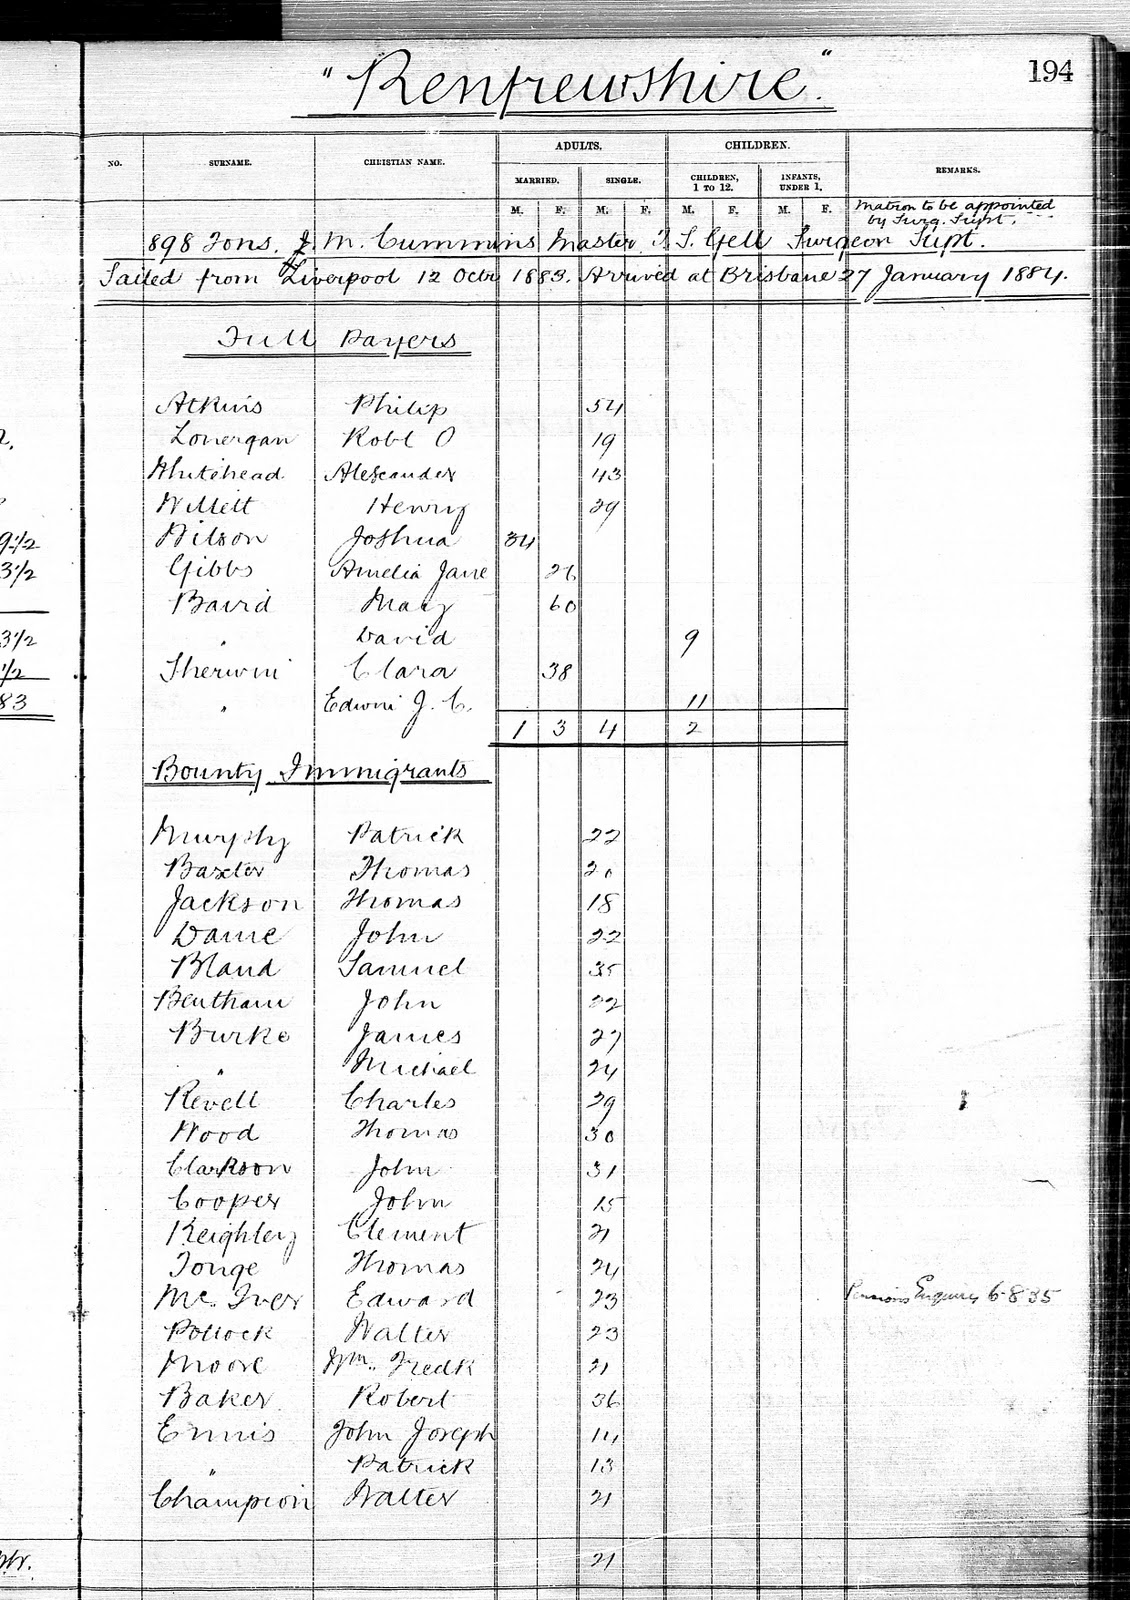 "Renfrewshire".
194
NO. SURNAME. CHRISTIAN NAME. ADULTS. CHILDREN. REMARKS.
MARRIED. SINGLE. CHILDREN, 1 TO 12. INFANTS, UNDER 1.
M. F. M. F. M. F. M. F.
Matron to be appointed
by Surg. Supt.
898 Tons. J. M. Cummins Master. T. S. Gell Surgeon Supt.
Sailed from Liverpool 12 Octr 1883. Arrived at Brisbane 27 January 1884.
Full Payers
Atkins Philip 54
Lonergan Robt O 19
Whitehead Alexander 43
Willett Henry 29
Wilson Joshua 34
9 1/2
Gibbs Amelia Jane 26
3 1/2
Baird Mary 60
" David 9
3 1/2
Sherwin Clara 38
1/2
" Edwin J. C. 11
83
1 3 4 2
Bounty Immigrants
Murphy Patrick 22
Baxter Thomas 20
Jackson Thomas 18
Dame John 22
Bland Samuel 35
Bentham John 22
Burke James 27
" Michael 24
Revell Charles 29
Wood Thomas 30
Clarkson John 31
Cooper John 15
Keighley Clement 21
Tonge Thomas 24
Mc. Iver Edward 23 Pensions Enquiry 6.8.35
Pollock Walter 23
Moore Wm. Fredk 21
Baker Robert 36
Ennis John Joseph 14
" Patrick 13
Champion Walter 21
21